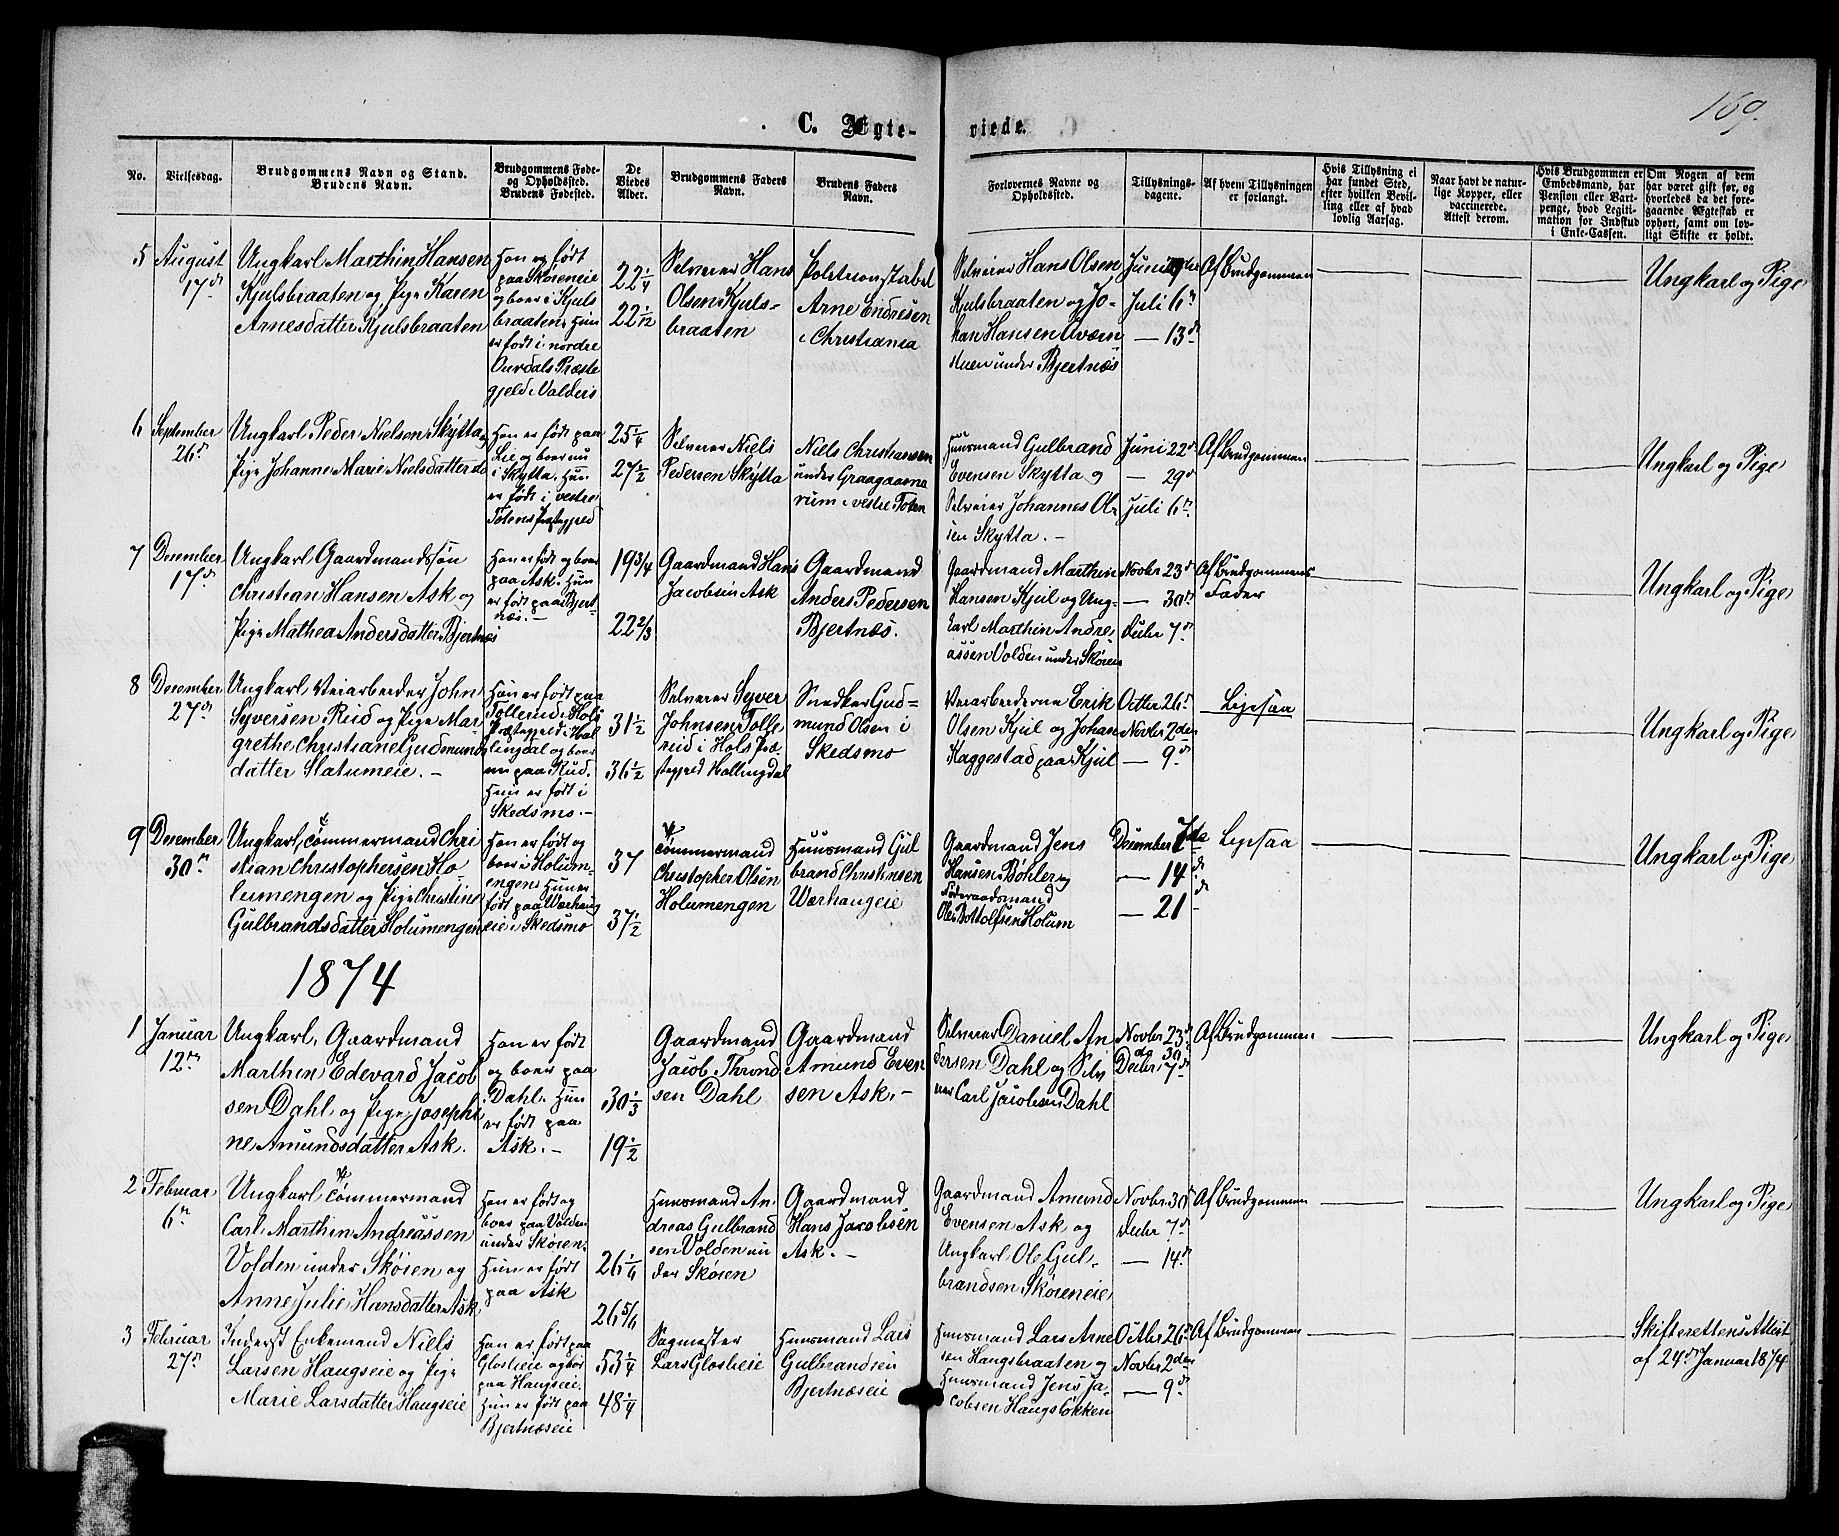 169.
C. Ægte- viede.
No.
Vielsesdag.
Brudgommens Navn og Stand.
Brudens Navn.
Brudgommens Føde-
og Opholdssted.
Brudens Fødested.
De
Viedes
Alder.
Brudgommens Faders
Navn.
Brudens Faders
Navn.
Forlovernes Navne og
Opholdssted.
Tillysnings-
dagene.
Af hvem Tillysningen
er forlangt.
Hvis Tillysning ei
har fundet Sted,
efter hvilken Bevil-
ling eller af hvad
lovlig Aarsag.
Naar havt de natur-
lige Kopper, eller
vaccinerede.
Attest derom.
Hvis Brudgommen er
Embedsmand, har
Pension eller Vart-
penge, hvad Legiti-
mation for Indskud
i Enke-Cassen.
Om Nogen af dem
har været gift før, og
hvorledes da det fore-
gaaende Ægteskab er
ophørt, samt om lov-
ligt Skifte er holdt.
5
August
17de
Ungkarl Marthin Hansen
Kjulsbraaten og Pige Karen
Arnesdatter Kjulsbraaten
Han og født
paa Skøieneie
og boer i Kjuls
braaten. Hun
er født i nordre
Ourdals Præste
gjeld i Valders
22 1/4
22 1/12
Selveier Hans
Olsen Kjuls-
braaten
Politikonstabel
Arne Endresen
i Christiania
Selveier Hans Olsen
Kjulsbraaten og Jo-
han Hansen
under Bjertnæs
Juni
Juli 6te
— 13de
Af Brudgommen
Ungkarl og Pige
6
September
26de
Ungkarl Peder Nielsen Skytta og
Pige Johanne Marie Nielsdatter do
Han er født paa
Lie og boer nu
i Skytta. Hun
er født i vestre
Totens Præstegjeld
25 1/4
27 1/2
Selveier Niels
Pedersen Skytta
Niels Christiansen
under Graagaarns
rum i vestre Toten
Huusmand Gulbrand
Evensen Skytta og
Selveier Johannes Ol-
sen Skytta. —
Juni 22de
— 29de
Juli 6te
Af Brudgommen
Ungkarl og Pige
7
December
17de
Ungkarl Gaardmandssøn
Christian Hansen Ask og
Pige Mathea Andersdatter Bjertnæs
Han er født og boer
paa Ask. Hun
er født paa Bjert-
næs. —
19 3/4
22 2/3
Gaardmand Hans
Jacobsen Ask
Gaardmand
Anders Pedersen
Bjertnæs.
Gaardmand Marthin
Hansen Kjul og Ung-
karl Marthin Andre-
assen Volden under Skøien
Novbr 23de
— 30te
Decbr 7de
Af Brudgommens
Fader
Ungkarl og Pige
8
December
27de
Ungkarl Veiarbeider John
Syversen Rud og Pige Mar-
grethe Christiane Gudmunds-
datter Slatumeie. —
Han er født paa
Tollerud i Hols
Præstegjeld i Hal
lingdal og boer
nu paa Rud.
Hun er født i
Skedsmo. —
31 1/2
36 1/2
Selveier Syver
Johnsen Tolle
rud i Hols Præ
stegjeld Hallingdal
Snedker Gud-
mund Olsen i
Skedsmo
Veiarbeiderne Erik
Olsen Kjul og Johan
Haggestad paa Kjul
Octbr 26de
Novbr 2den
— 9de
Ligesaa
Ungkarl og Pige
9
December
30te
Ungkarl, Tømmermand Chri
stian Christophersen Ho-
lumengen og Pige Christine
Gulbrandsdatter Holumengen
Han er født og
boer i Holum-
engen. Hun er
født paa Wærhaug
eie i Skedsmo
37
37 1/2
Tømmermand
Christopher Olsen
Holumengen
Huusmand Gul
brand Christensen
Wærhaugeie
Gaardmand Jens
Hansen Bøhler og
Føderaadsmand
Ole Bottolfsen Holum
December 7de
— 14de
— 21de
Ligesaa
Ungkarl og Pige
1874
1
Januar
12te
Ungkarl, Gaardmand
Marthin Edevard Jacob
sen Dahl og Pige Josephi
ne Amundsdatter Ask.
Han er født
og boer paa
Dahl. Hun
er født paa
Ask. —
30 1/3
19 1/2
Gaardmand
Jacob Thrond
sen Dahl
Gaardmand
Amund Even
sen Ask. —
Selveier Daniel An
dersen Dahl og Selv
eier Carl Jacobsen Dahl
Novbr 23de
do 30
Decbr 7de
Af Brudgommen
Ungkarl og Pige
2
Februar
6te
Ungkarl Tømmermand
Carl Marthin Andreassen
Volden under Skøien og
Anne Julie Hansdatter Ask
Han er født og
boer paa Volden
under Skøien.
Hun er født
paa Ask
26 1/6
26 5/6
Huusmand An
dreas Gulbrand
sen Volden un
der Skøien
Gaardmand
Hans Jacobsen
Ask. —
Gaardmand Amund
Evensen Ask og
Ungkarl Ole Gul-
brandsen Skøieneie
Novbr. 30te
Decbr 7de
— 14de
Af Brudgommen
Ungkarl og Pige
3
Februar
27de
Inderst Enkemand Niels
Larsen Haugseie og Pige
Marie Larsdatter Haugseie
Han er født paa
Gloslieie og boer
paa Haugseie.
Hun er født paa
Bjertnæseie
53 1/4
48 1/4
Sagmester
Lars Gloslieie
Huusmand Lars
Gulbrandsen
Bjertnæseie
Huusmand Lars Arne
sen Haugsbraaten og
Huusmand Jens Ja-
cobsen Haugsløkken
Octbr 26de
Novbr 2den
— 9de
Af Brudgommen
Skifterettens Attest
af 24de Januar 1874